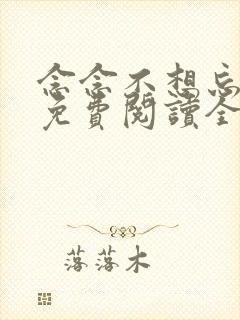 念念不想忘
免費閱讀全
落落木